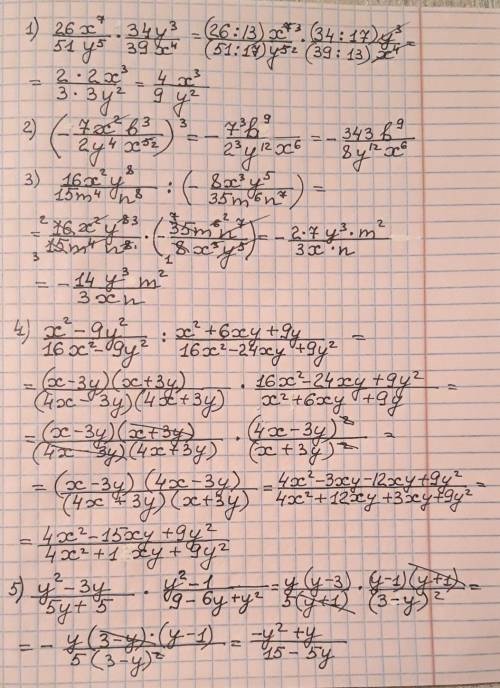 1) 26x⁷/51y⁵ · 34y³/39x⁴ = (26:13)x⁷³·(34:17)y³/(51:17)y⁵²·(39:13)x⁴ =
= 2·2x³/3·3y² = 4x³/9y²
2) (-7x²b³/2y⁴x⁵²)³ = -7³b⁹/2³y¹²x⁶ = -343b⁹/8y¹²x⁶
3) 16x²y⁸/15m⁴n⁸ : (-8x³y⁵/35m⁶n⁷) =
= ²16x²y⁸³/₃15m⁴n⁸ · (-⁷35m⁶²n⁷/₁8x³y⁵) = -2·7y³·m²/3x·n
= -14y³m²/3xn
4) x²-9y²/16x²-9y² : x²+6xy+9y/16x²-24xy+9y² =
= (x-3y)(x+3y)/(4x-3y)(4x+3y) · 16x²-24xy+9y²/x²+6xy+9y =
= (x-3y)(x+3y)/(4x-3y)(4x+3y) · (4x-3y)²/(x+3y)² =
= (x-3y)(4x-3y)/(4x+3y)(x+3y) = 4x²-3xy-12xy+9y²/4x²+12xy+3xy+9y² =
= 4x²-15xy+9y²/4x²+1 xy+9y²
5) y²-3y/5y+5 · y²-1/9-6y+y² = y(y-3)/5(y+1) · (y-1)(y+1)/(3-y)² =
= -y(3-y)·(y-1)/5(3-y)² = -y²+y/15-5y